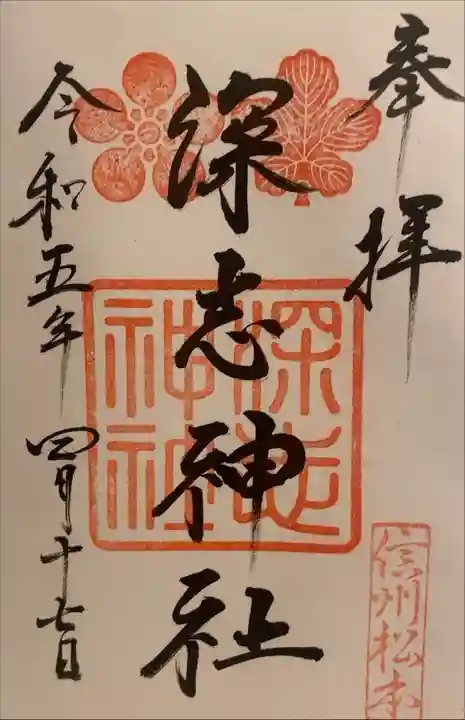 奉拝
深志神社
深志神社
信州松本
令和五年四月十七日